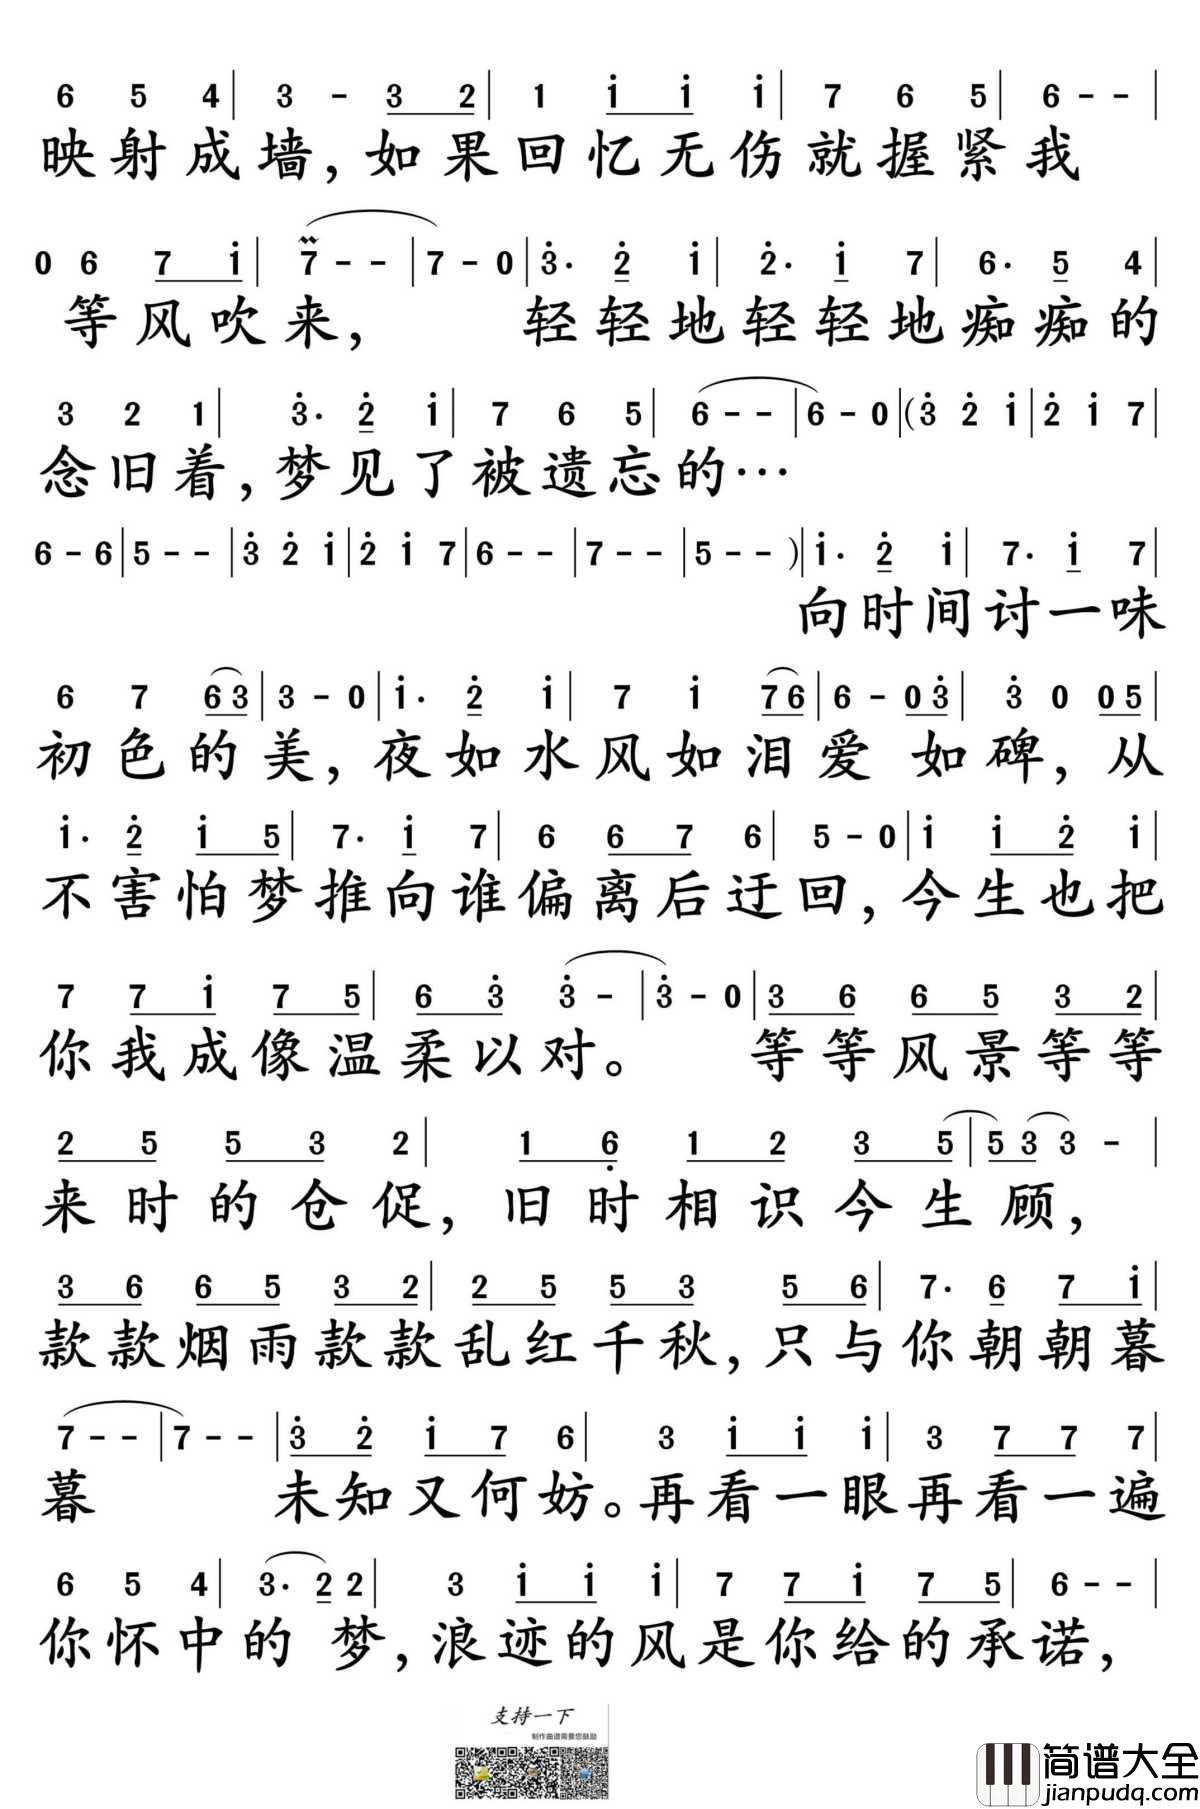 6 5 4 | 3 - 3 2 | 1 i i i | 7 6 5 | 6 - - |
映射成墙，如果回忆无伤就握紧我
0 6 7 i | 7 - - | 7 - 0 | 3· 2 i | 2· i 7 | 6· 5 4 |
等风吹来，轻轻地轻轻地痴痴的
3 2 1 | 3· 2 i | 7 6 5 | 6 - - | 6 - 0 | (3 2 i | 2 i 7 |
念旧着，梦见了被遗忘的…
6 - 6 | 5 - - | 3 2 i | 2 i 7 | 6 - - | 7 - - | 5 - - ) | i· 2 i | 7· i 7 |
向时间讨一味
6 7 6 3 | 3 - 0 | i· 2 i | 7 i 7 6 | 6 - 0 3 | 3 0 0 5 |
初色的美，夜如水风如泪爱 如碑，从
i· 2 i 5 | 7· i 7 | 6 6 7 6 | 5 - 0 | i i 2 i |
不害怕梦推向谁偏离后迂回，今生也把
7 7 i 7 5 | 6 3 3 - | 3 - 0 | 3 6 6 5 3 2 |
你我成像温柔以对。 等等风景等等
2 5 5 3 2 | 1 6 1 2 3 5 | 5 3 3 - |
来时的仓促，旧时相识今生顾，
3 6 6 5 3 2 | 2 5 5 3 5 6 | 7· 6 7 i |
款款烟雨款款乱红千秋，只与你朝朝暮
7 - - | 7 - - | 3 2 i 7 6 | 3 i i i | 3 7 7 7 |
暮 未知又何妨。再看一眼再看一遍
6 5 4 | 3· 2 2 | 3 i i i | 7 7 i 7 5 | 6 - - |
你怀中的 梦，浪迹的风是你给的承诺，
支持一下
制作曲谱需要您鼓励
简谱大全
jianpudq.com